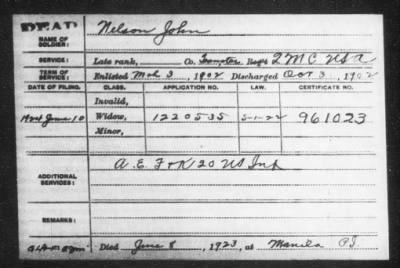 DEAD
NAME OF SOLDIER: Nelson John
SERVICE: Late rank, Co. Reg't Q M C U S A
TERM OF SERVICE: Enlisted Mch 3, 1902 Discharged Oct 3, 1902
DATE OF FILING. CLASS. APPLICATION NO. LAW. CERTIFICATE NO.
Invalid,
1924 June 10 Widow, 1220535 5-1-22 961023
Minor,
ADDITIONAL SERVICES: A. E. F & K 20 US Inf
REMARKS:
Died June 8, 1923, at Manila P.I.